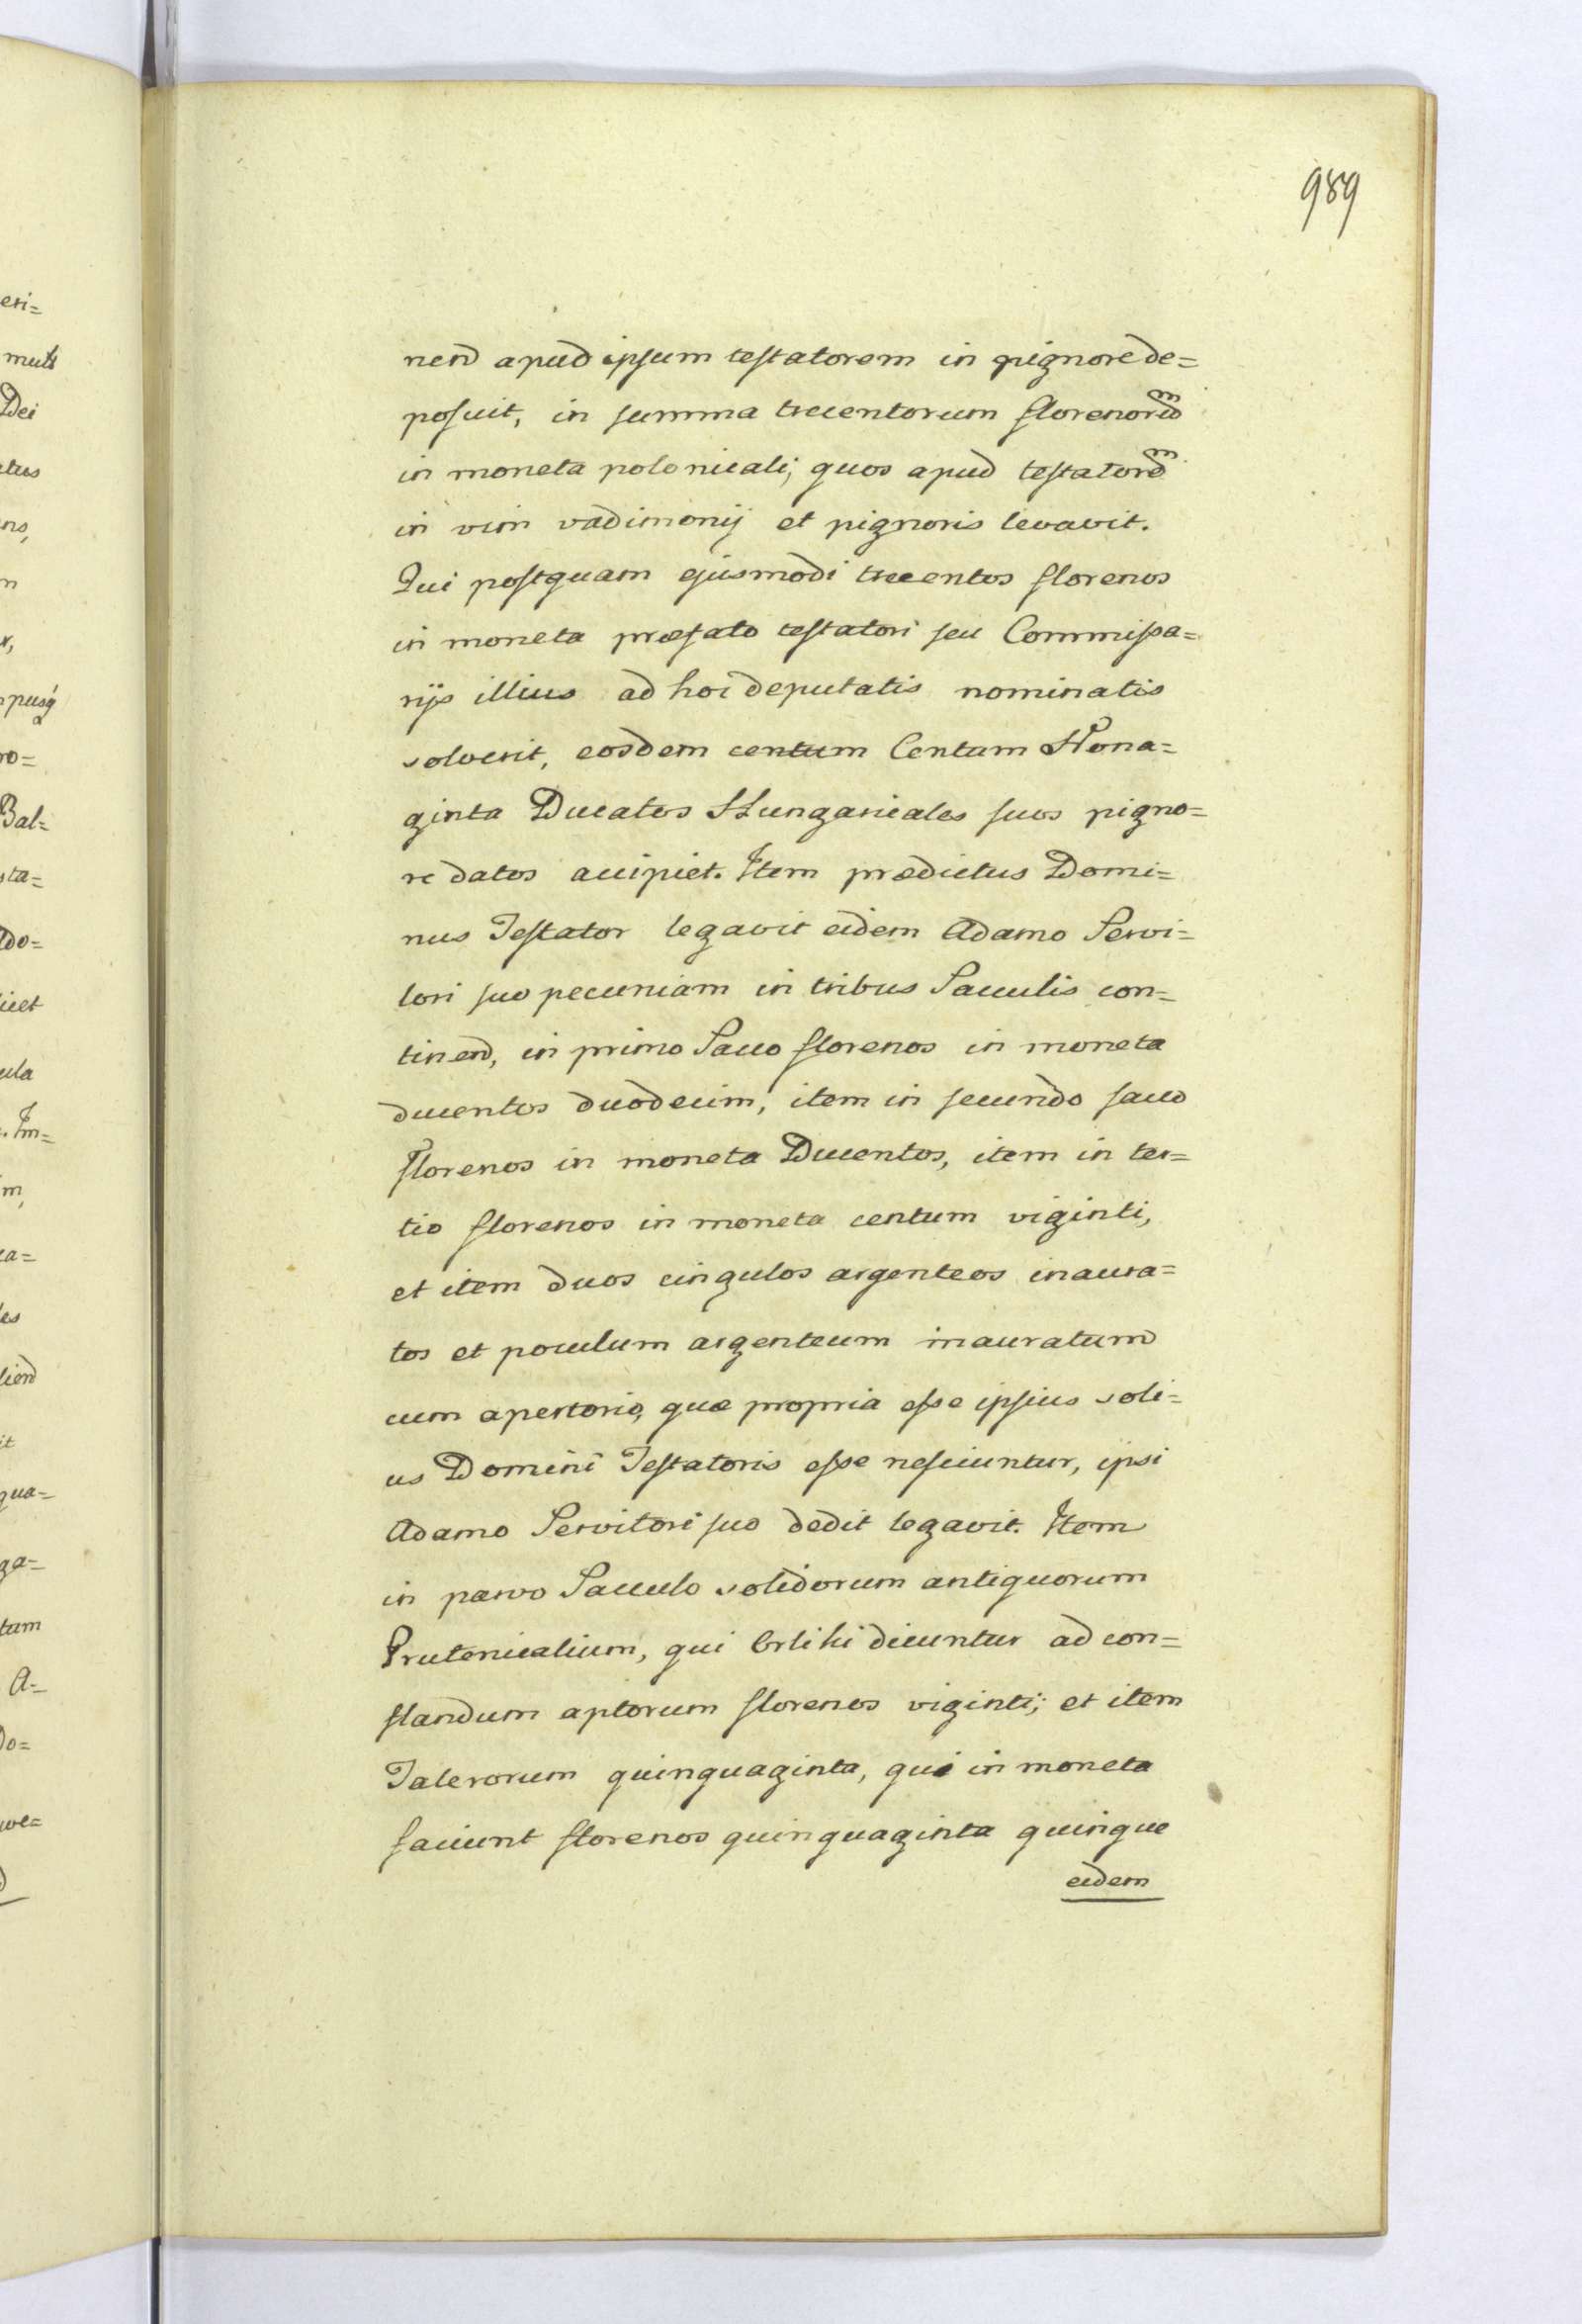 989
nend apud ipsum testatorem in pignore de=
posuit, in summa trecentorum florenorum
in moneta polonicali, quos apud testatorem
in vim vadimonij et pignoris levavit.
Qui postquam ejusmodi trecentos florenos
in moneta præfato testatori seu Commissa=
rijs illius ad hoc deputatis nominatis
solverit, eosdem centum Centum Nona=
ginta Ducatos Hungaricales suos pigno=
re datos accipiet. Item prædictus Domi=
nus Testator legavit eidem Adamo Servi=
tori suo pecuniam in tribus Sacculis con=
tinend, in primo Sacco florenos in moneta
ducentos duodecim, item in secundo sacco
florenos in moneta Ducentos, item in ter=
tio florenos in moneta centum viginti,
et item duos cingulos argenteos inaura=
tos et poculum argenteum inauratum
cum apertorio, quæ propria esse ipsius soli=
us Domini Testatoris esse nesciuntur, ipsi
Adamo Servitori suo dedit legavit. Item
in parvo Sacculo solidorum antiquorum
Prutenicalium, qui Orliki dicuntur ad con=
flandum aptorum florenos viginti; et item
Talerorum quinquaginta, qui in moneta
faciunt florenos quinquaginta quinque
eidem
eri=
Dei
ns,
n
ro=
Bal=
sta=
ula
. Im=
m,
les
it
qua=
ga=
tam
A=